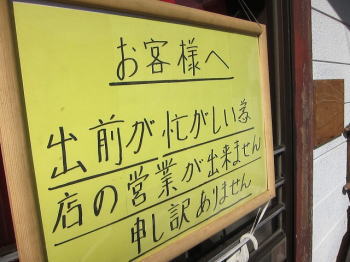 お客様へ
出前が忙がしい為
店の営業が出来ません
申し訳ありません